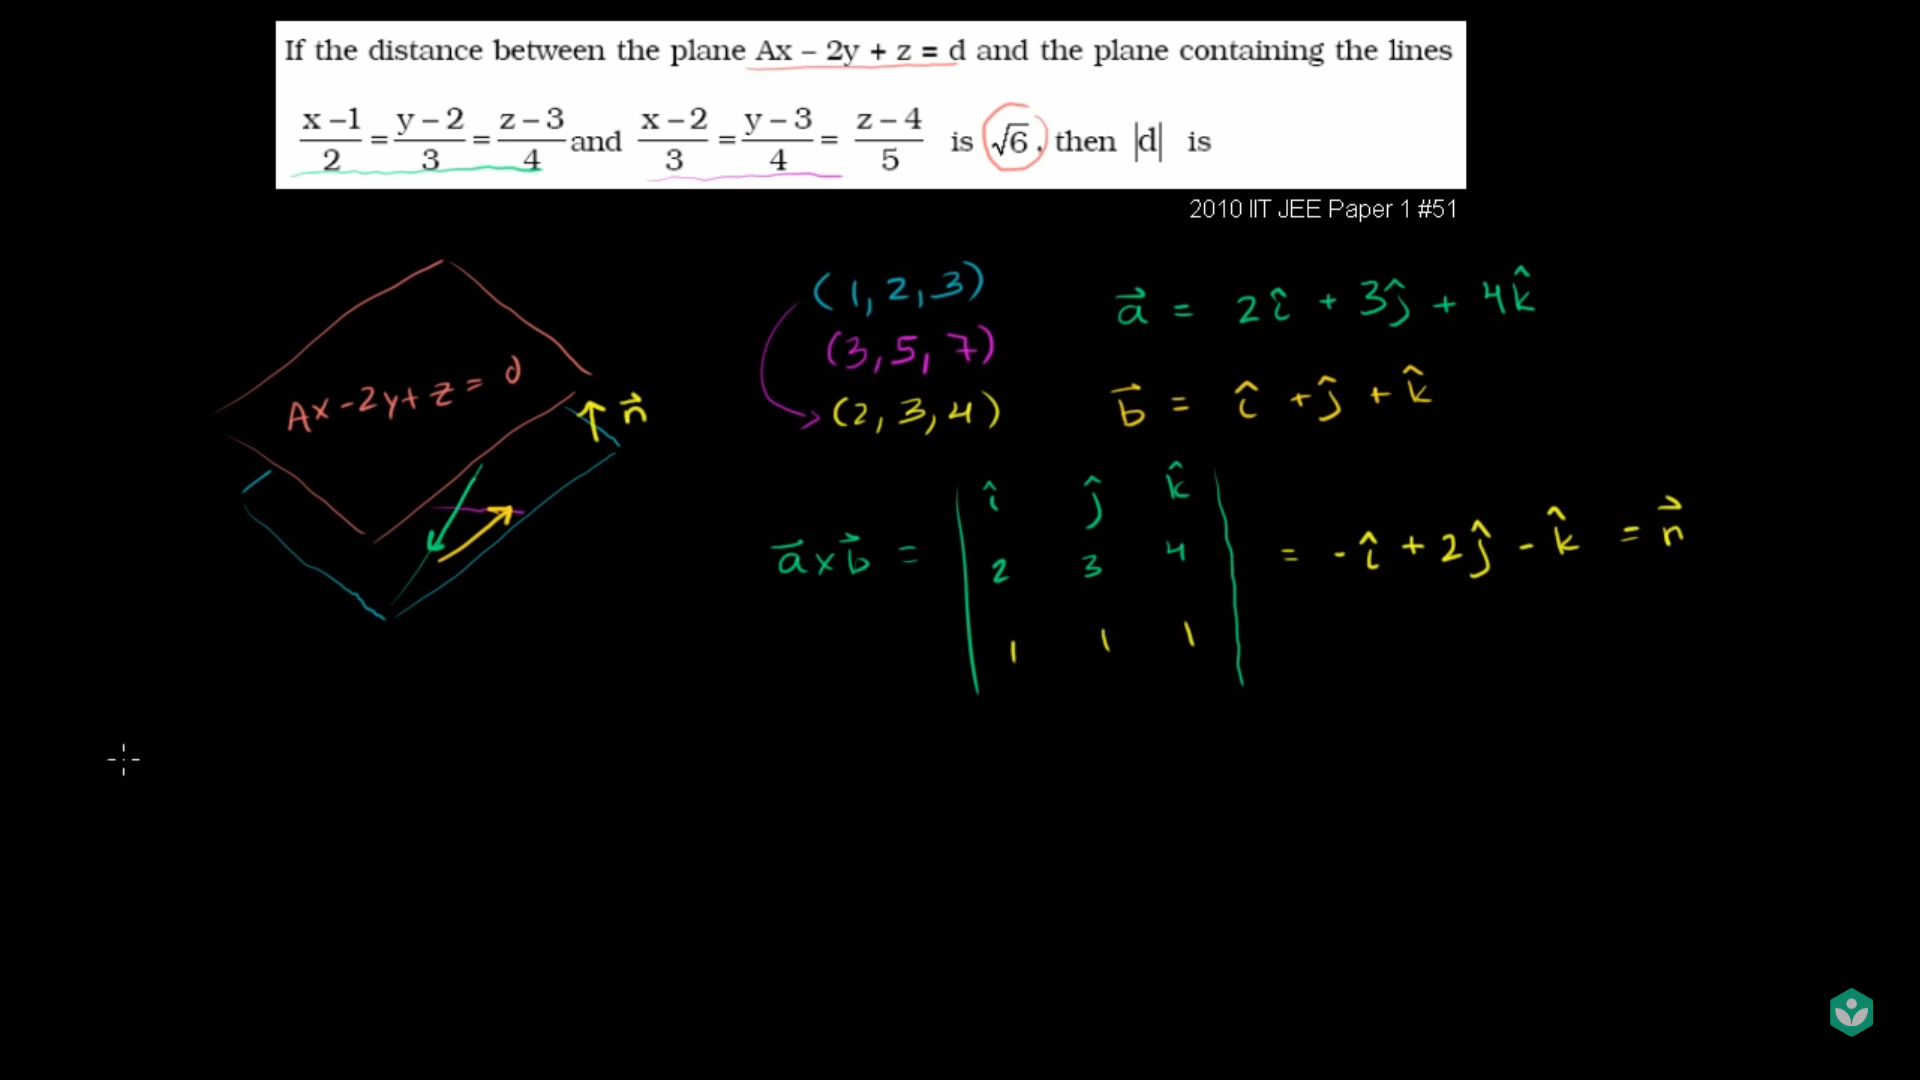 If the distance between the plane Ax – 2y + z = d and the plane containing the lines
x –1/2 = y – 2/3 = z – 3/4 and x – 2/3 = y – 3/4 = z – 4/5 is √6, then |d| is
2010 IIT JEE Paper 1 #51
Ax-2y+z = d
n⃗
(1,2,3)
(3,5,7)
(2,3,4)
a⃗ = 2î + 3ĵ + 4k̂
b⃗ = î + ĵ + k̂
a⃗ x b⃗ = | î ĵ k̂
2 3 4
1 1 1 | = -î + 2ĵ - k̂ = n⃗